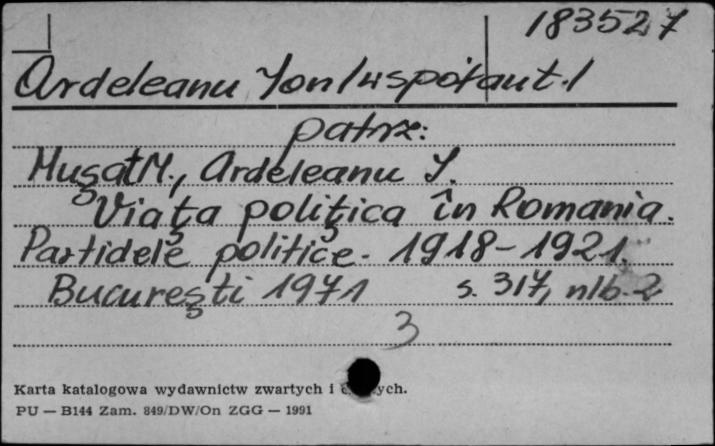 183527
Ardeleanu Ion /współaut./
patrz:
Muşat M., Ardeleanu I.
Viaţa poliţica în Romania.
Partidele politice. 1918-1921.
Bucureşti 1971 s. 317, nlb. 2
3
Karta katalogowa wydawnictw zwartych i
PU — B144 Zam. 849/DW/On ZGG — 1991